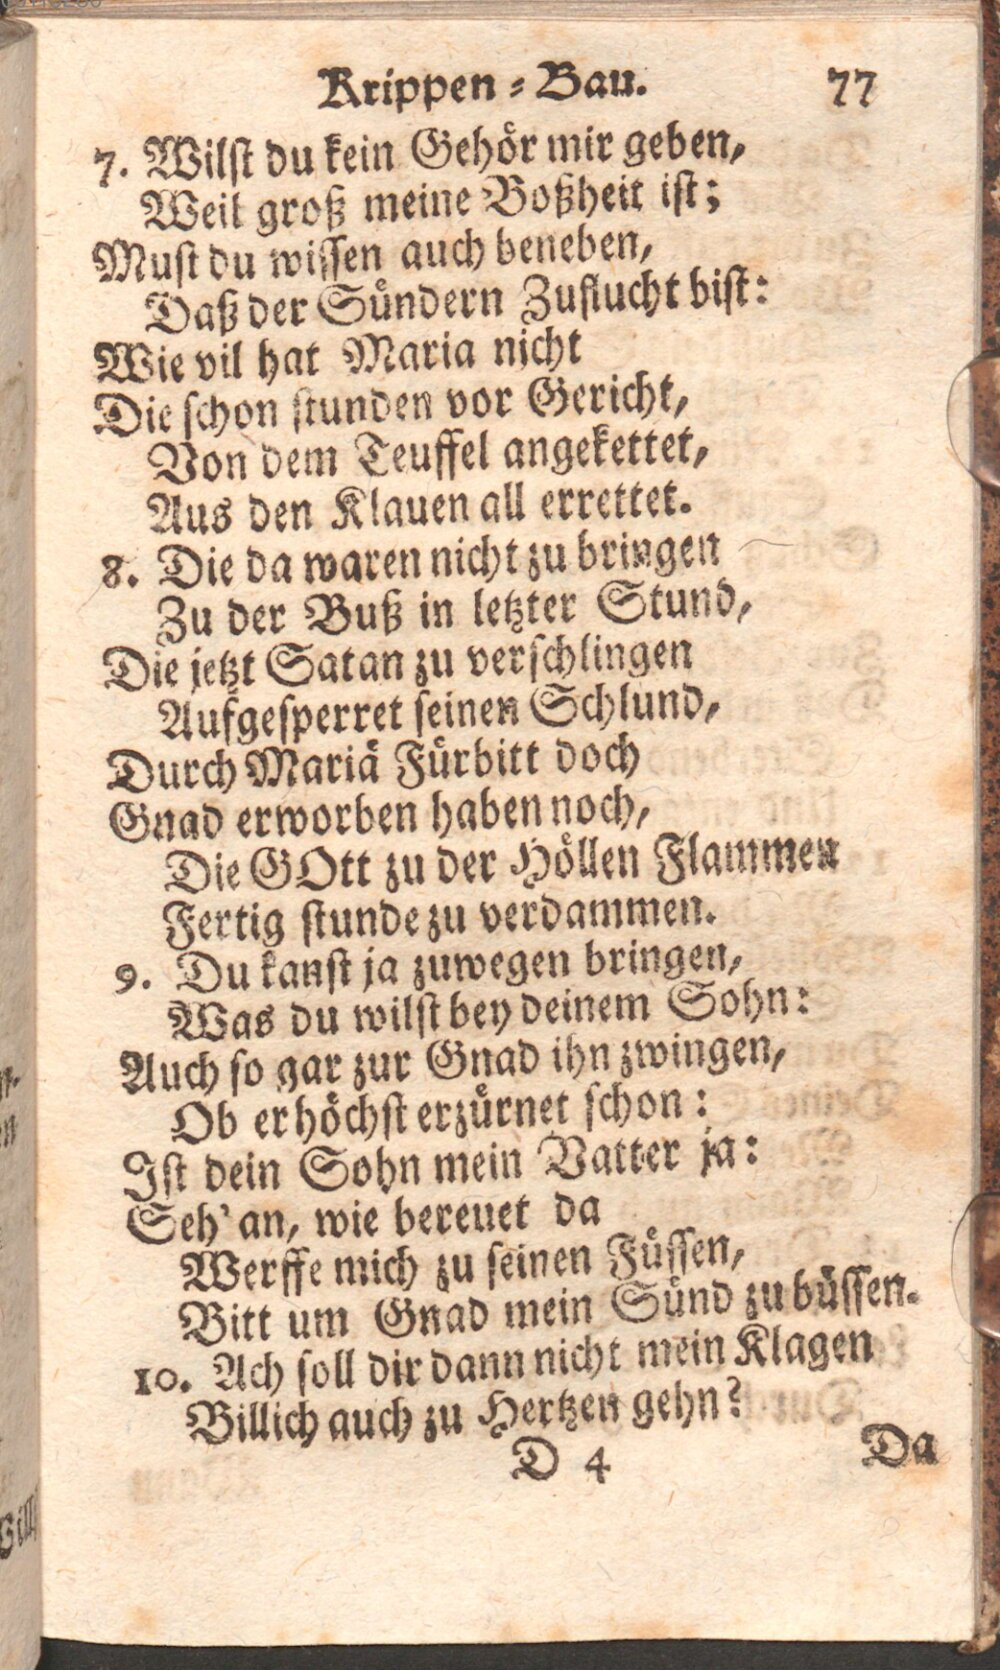 Krippen-Bau. 77
7. Wilst du kein Gehör mir geben,
Weil groß meine Boßheit ist;
Must du wissen auch beneben,
Daß der Sündern Zuflucht bist:
Wie vil hat Maria nicht
Die schon stunden vor Gericht,
Von dem Teuffel angekettet,
Aus den Klauen all errettet.
8. Die da waren nicht zu bringen
Zu der Buß in letzter Stund,
Die jetzt Satan zu verschlingen
Aufgesperret seinen Schlund,
Durch Mariä Fürbitt doch
Gnad erworben haben noch,
Die GOtt zu der Höllen Flammen
Fertig stunde zu verdammen.
9. Du kanst ja zuwegen bringen,
Was du wilst bey deinem Sohn:
Auch so gar zur Gnad ihn zwingen,
Ob er höchst erzürnet schon:
Ist dein Sohn mein Vatter ja:
Seh' an, wie bereuet da
Werffe mich zu seinen Füssen,
Bitt um Gnad mein Sünd zu büssen.
10. Ach soll dir dann nicht mein Klagen
Billich auch zu Hertzen gehn?
D 4 Da